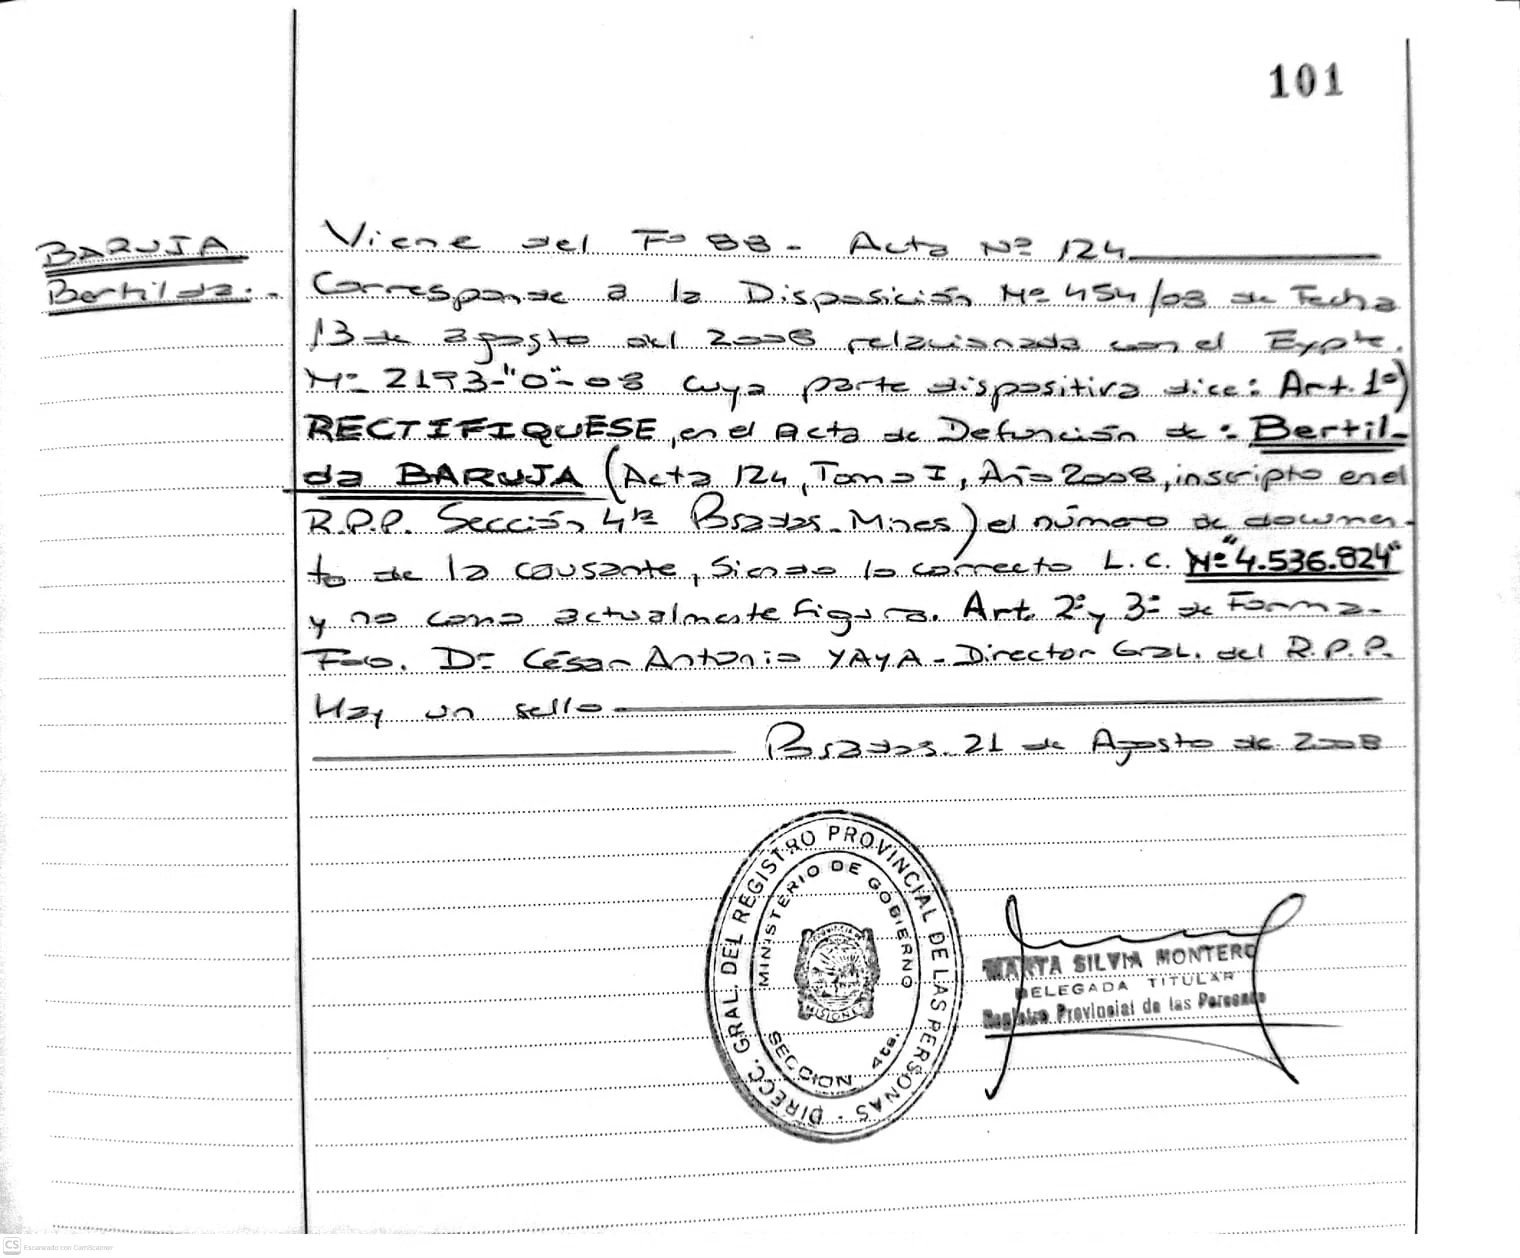 101
BARUJA
Bertilda.-
Viene del Fº 88 - Acta Nº 124
Corresponde a la Disposición Nº 454/08 de Fecha
13 de agosto del 2008 relacionada con el Expte.
Nº 2193-"0"-08 cuya parte dispositiva dice: Art. 1º)
RECTIFIQUESE, en el Acta de Defunción de: Bertil-
da BARUJA (Acta 124, Tomo I, Año 2008, inscripto en el
R.P.P. Sección 4ta Posadas-Mnes) el número de docume-
to de la causante, Siendo lo correcto L.C. Nº "4.536.824"
y no como actualmente figura. Art. 2º y 3º de Forma-
Fdo. Dr César Antonio YAYA - Director Gral. del R.P.P.
Hay un sello
Posadas. 21 de Agosto de 2008
DIRECC. GRAL. DEL REGISTRO PROVINCIAL DE LAS PERSONAS -
MINISTERIO DE GOBIERNO
MISIONES
SECCION 4ta.
MARTA SILVIA MONTERO
DELEGADA TITULAR
Registro Provincial de las Personas
CS Escaneado con CamScanner